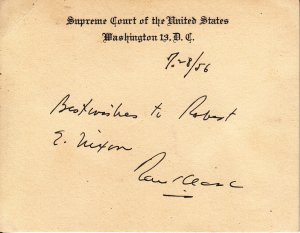 Supreme Court of the United States
Washington 13, D. C.
7-28/56
Best wishes to Robert
E. Nixon